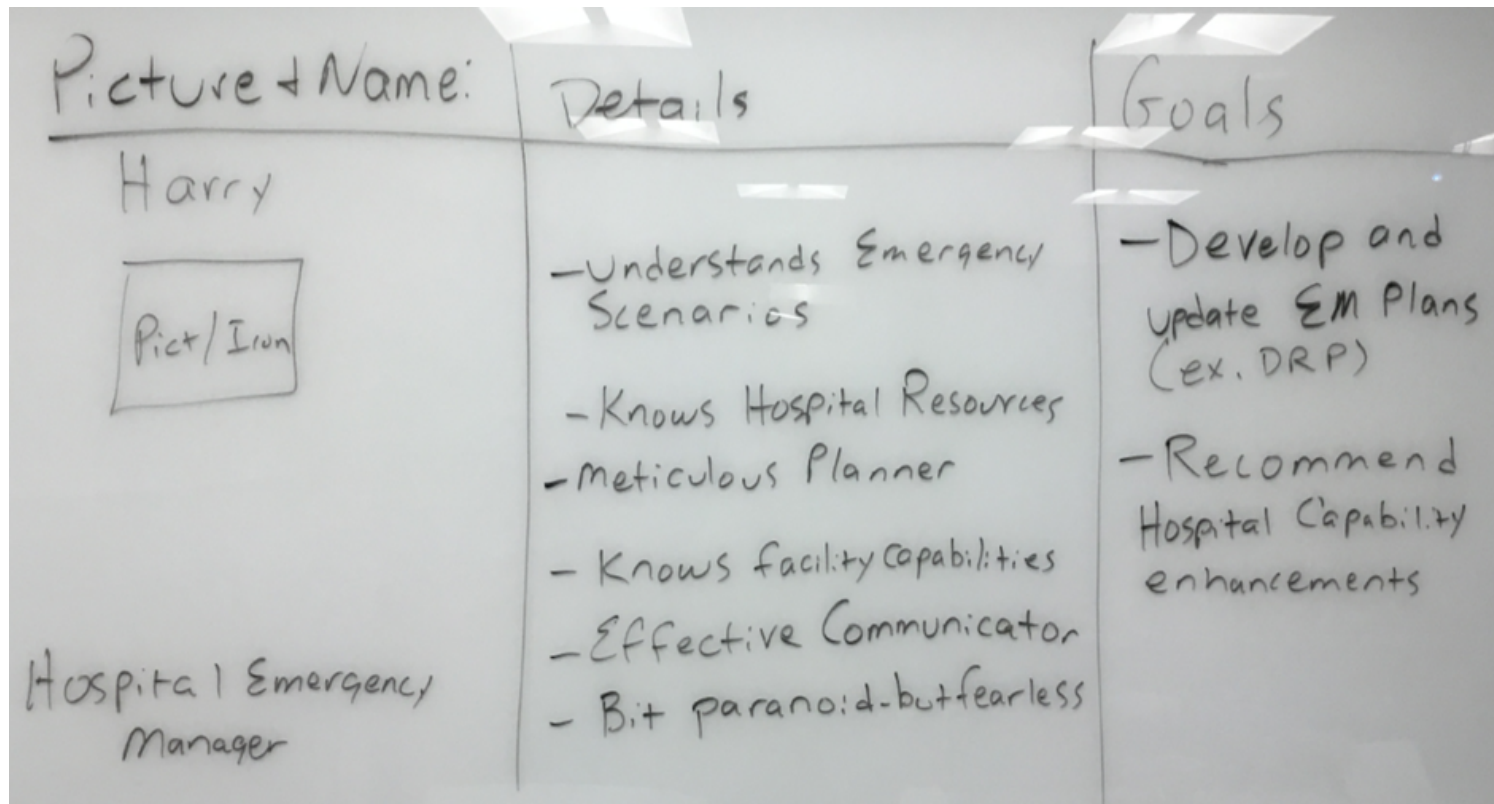 Picture & Name:
Harry
Pict/Icon
Hospital Emergency
Manager
Details
-Understands Emergency
Scenarios
-Knows Hospital Resources
-Meticulous Planner
- Knows facility capabilities
-Effective Communicator
- Bit paranoid-but fearless
Goals
-Develop and
update EM Plans
(ex. DRP)
-Recommend
Hospital Capability
enhancements